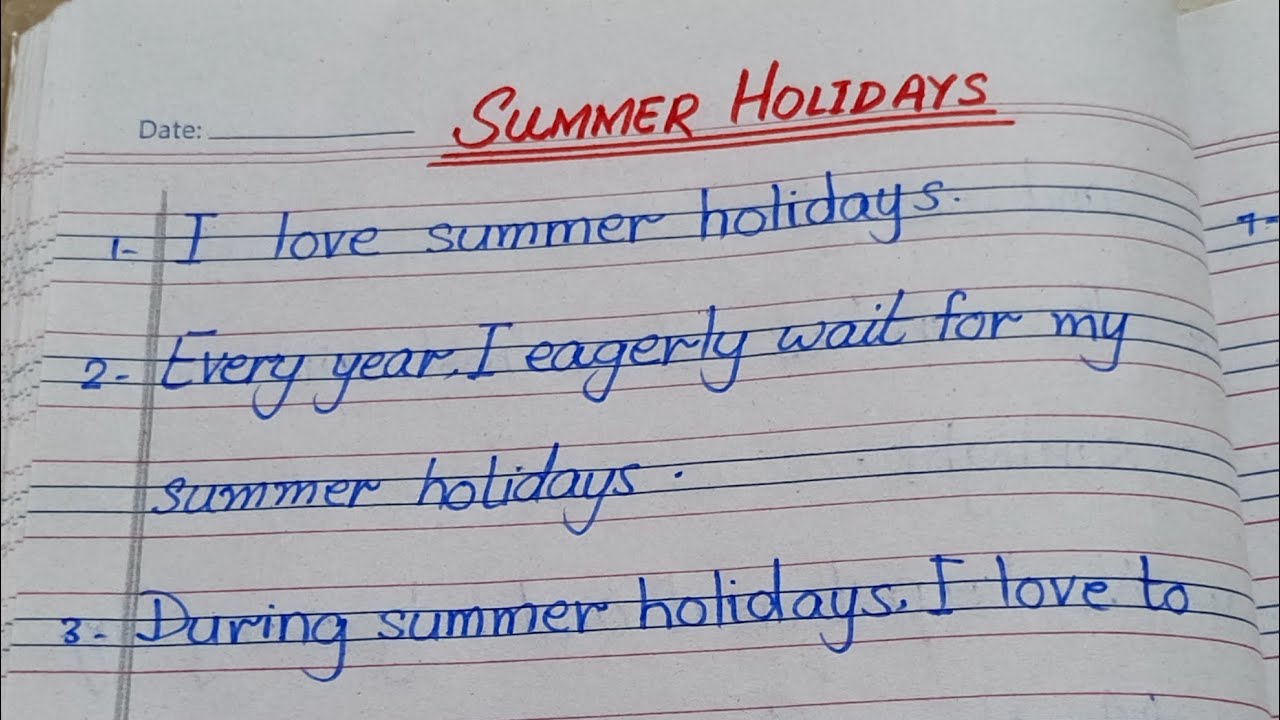 Date:
SUMMER HOLIDAYS
1- I love summer holidays.
2- Every year, I eagerly wait for my
summer holidays.
3- During summer holidays, I love to
7-